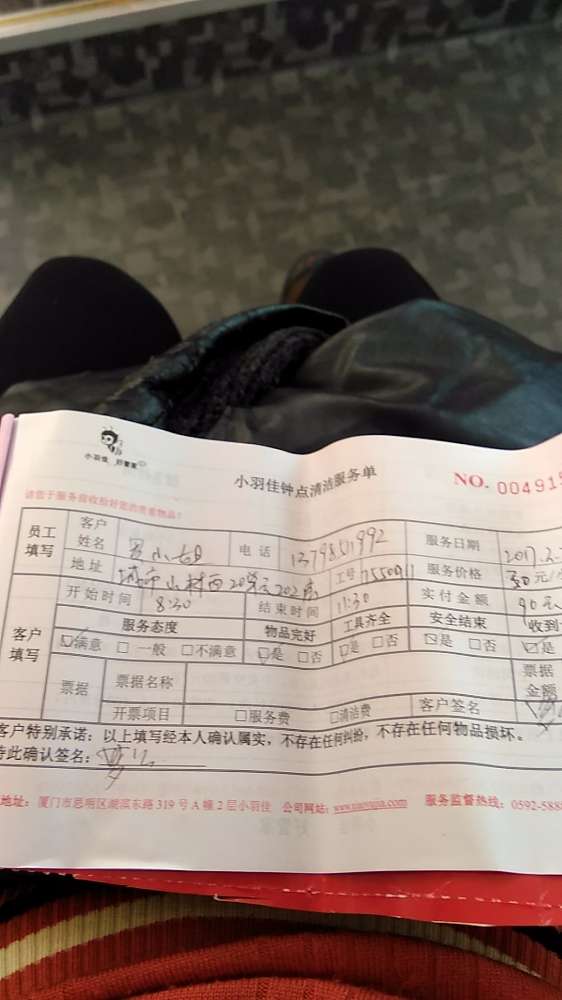 小羽佳 好管家
小羽佳钟点清洁服务单
NO. 004919
请您于服务前收检好您的贵重物品!
员工填写 客户姓名 罗小姐 电话 服务日期 2017.
地址 城市山林西 202 工号 服务价格 30元/
客户填写 开始时间 8:30 结束时间 11:30 实付金额 90元
服务态度 物品完好 工具齐全 安全结束 收到
☑满意 □一般 □不满意 ☑是 □否 ☑是 □否 ☑是 □否 ☑是
票据 票据名称 票据金额
开票项目 □服务费 □清洁费 客户签名
客户特别承诺:以上填写经本人确认属实,不存在任何纠纷,不存在任何物品损坏。
特此确认签名:
地址:厦门市思明区湖滨东路319号A幢2层小羽佳 公司网站:www.xiaoyujia.com 服务监督热线:0592-588